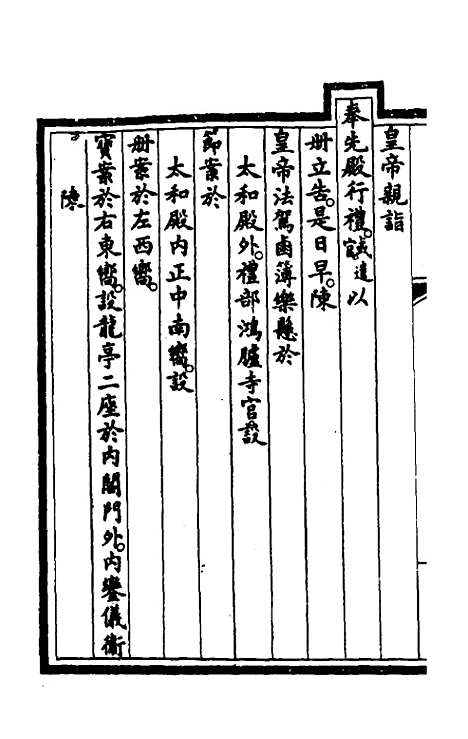 皇帝親詣
奉先殿行禮。或遣以
冊立告。是日早。陳
皇帝法駕鹵簿樂懸於
太和殿外。禮部鴻臚寺官設
節案於
太和殿内正中南嚮。設
冊案於左西嚮。
寶案於右東嚮。設龍亭二座於内閣門外。内鑾儀衛
陳